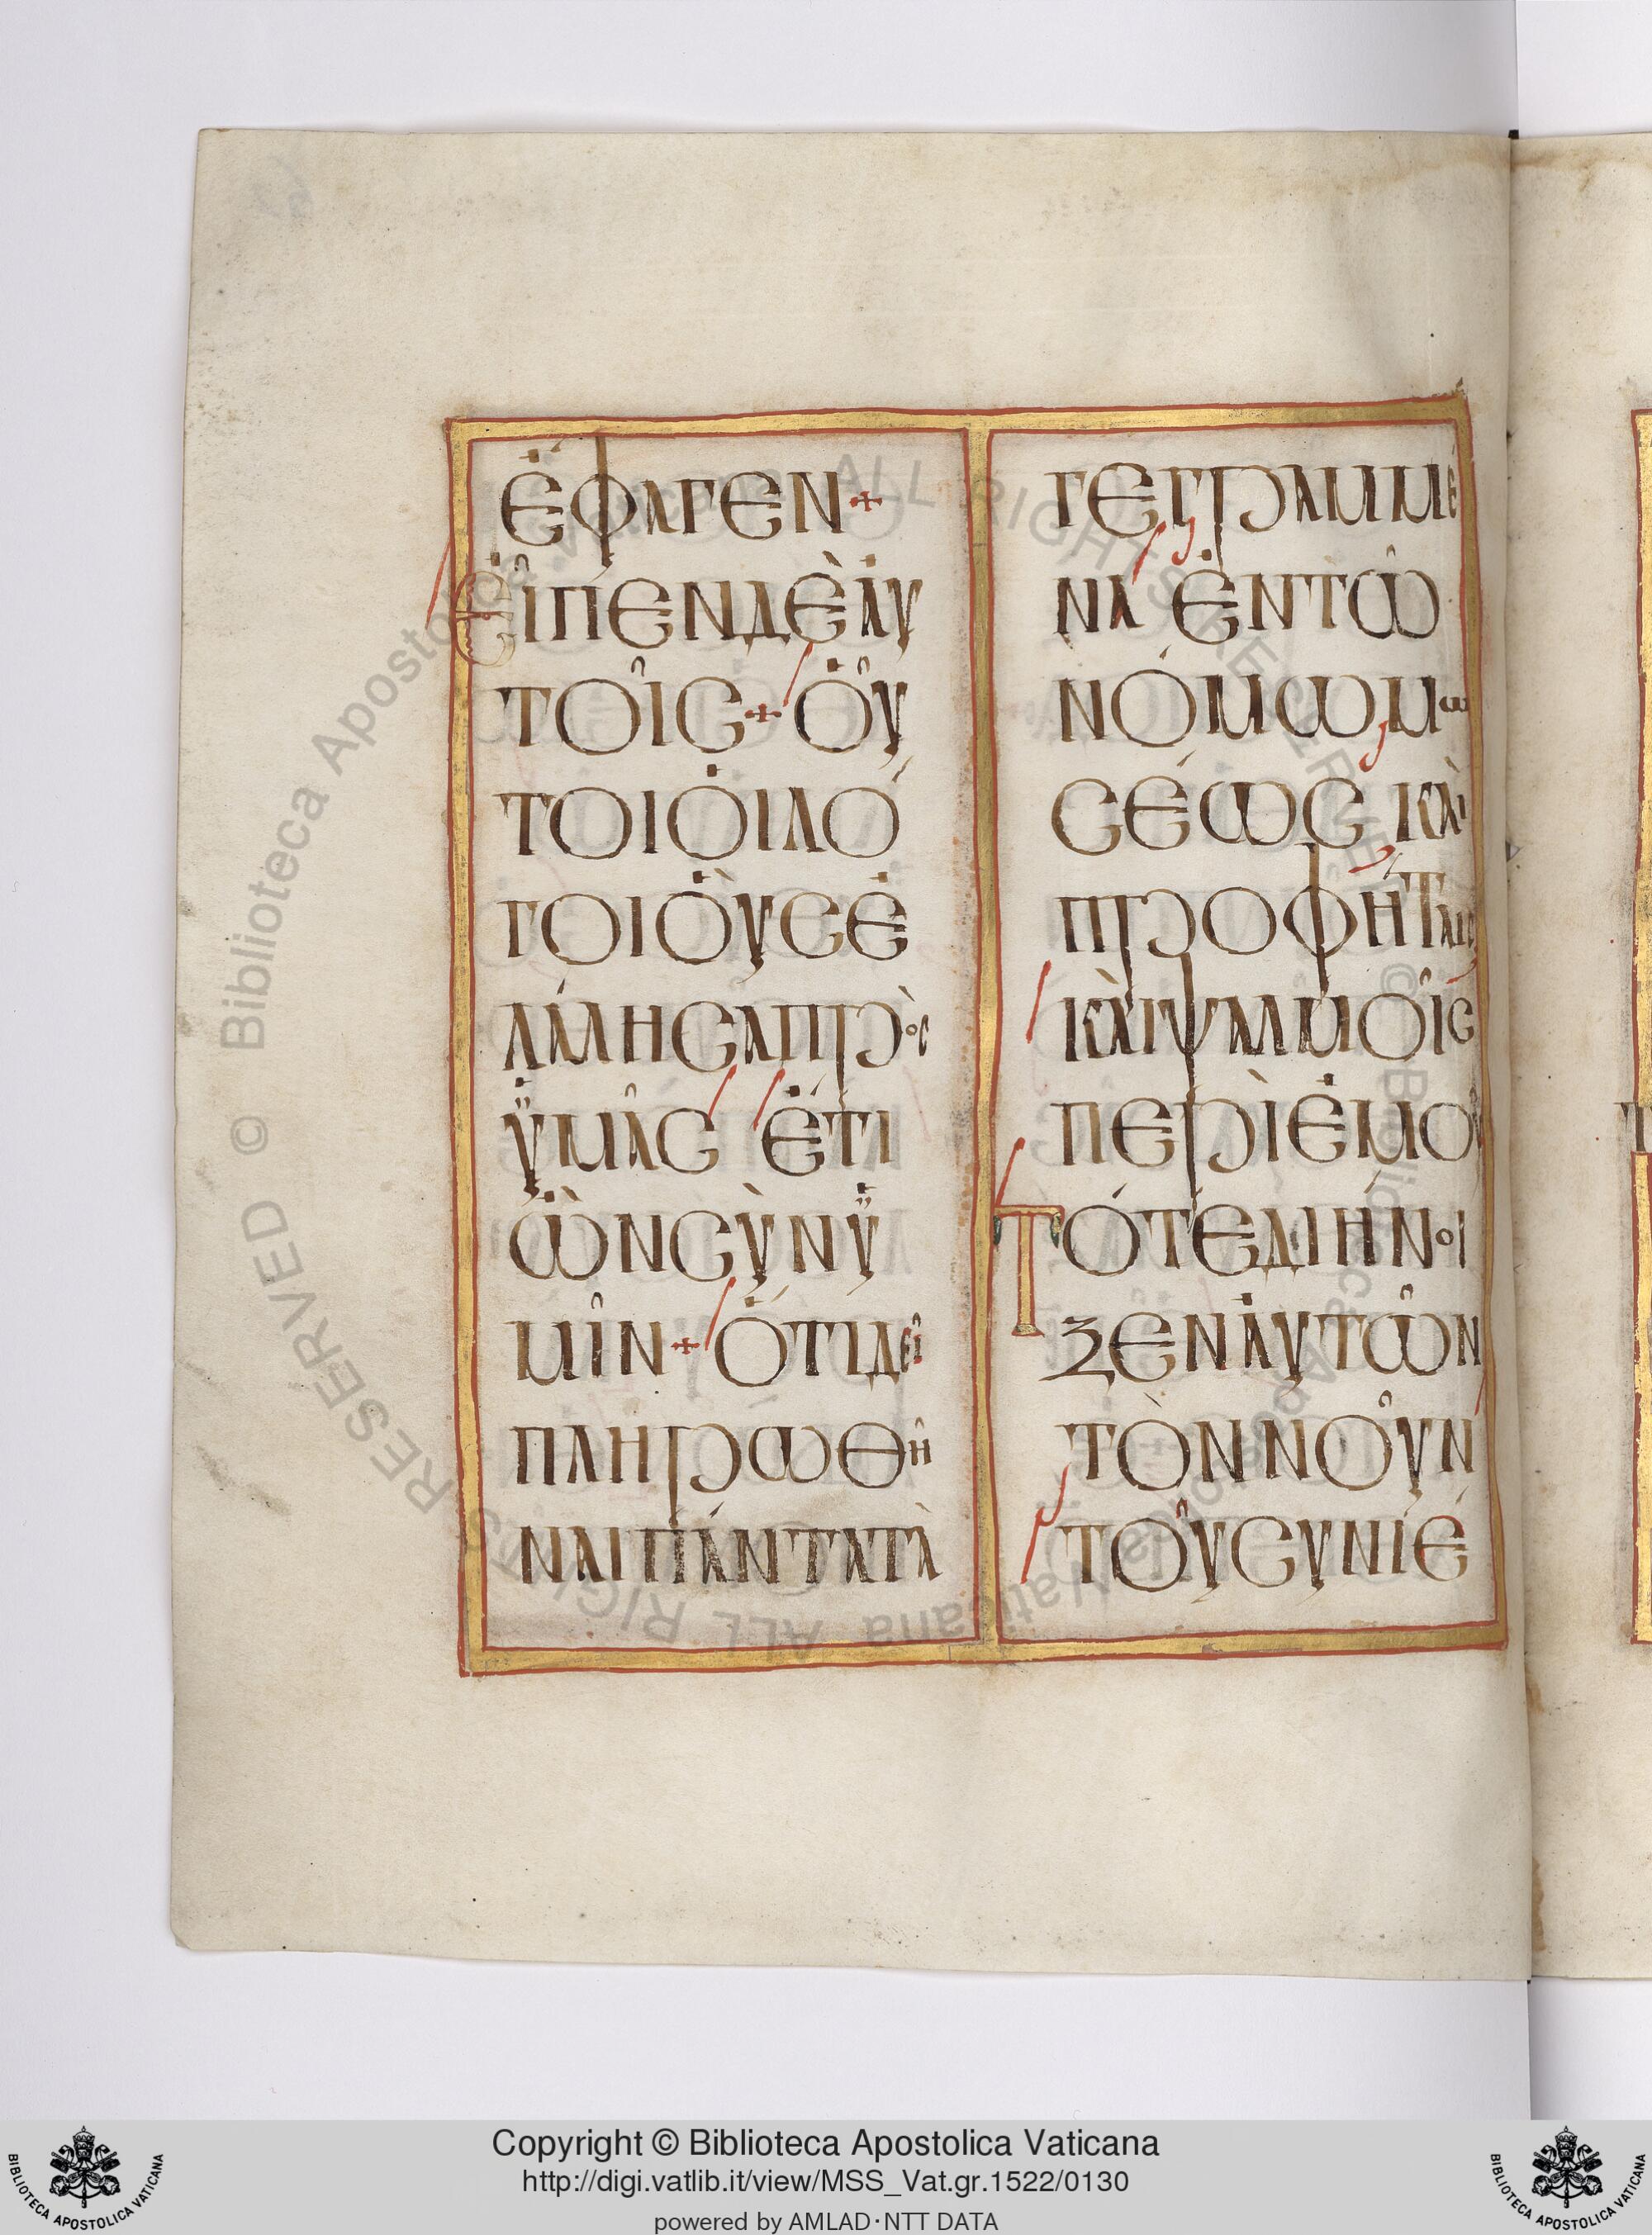 ἔφαγεν+
εἶπεν δὲ αὐ
τοῖς+ οὗ
τοι οἱ λό
γοι οὓς ἐ
λάλησα πρὸς
ὑμᾶς ἔτι
ὢν σὺν ὑ
μῖν+ ὅτι δεῖ
πληρωθῆ
ναι πάντα τὰ
γεγραμμέ
να ἐν τῶ
νόμω μω
σέως καὶ
προφήταις
καὶ ψαλμοῖς
περὶ ἐμοῦ
τότε διήνοι
ξεν αὐτῶν
τὸν νοῦν
τοῦ συνιέ
Copyright © Biblioteca Apostolica Vaticana
http://digi.vatlib.it/view/MSS_Vat.gr.1522/0130
powered by AMLAD·NTT DATA
BIBLIOTECA APOSTOLICA VATICANA
BIBLIOTECA APOSTOLICA VATICANA
© Biblioteca Apostolica Vaticana ALL RIGHTS RESERVED © Biblioteca Apostolica Vaticana ALL RIGHTS RESERVED